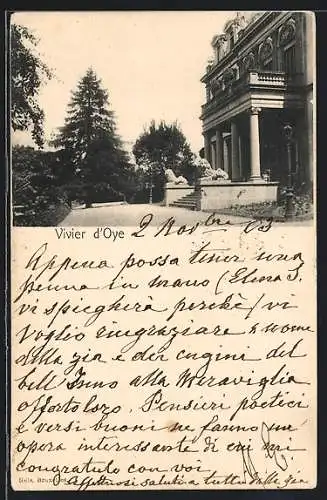 Vivier d'Oye 2 Novbre 03
Appena possa tener una
penna in mano (Elena S.
vi spiegherà perchè) vi
voglio ringraziare a nome
della zia e dei cugini del
bell' Inno alla Meraviglia
offerto loro. Pensieri poetici
e versi buoni ne fanno un'
opera interessante di cui mi
congratulo con voi
Nels, Bruxelles
Affettuosi saluti a tutti dalla zia